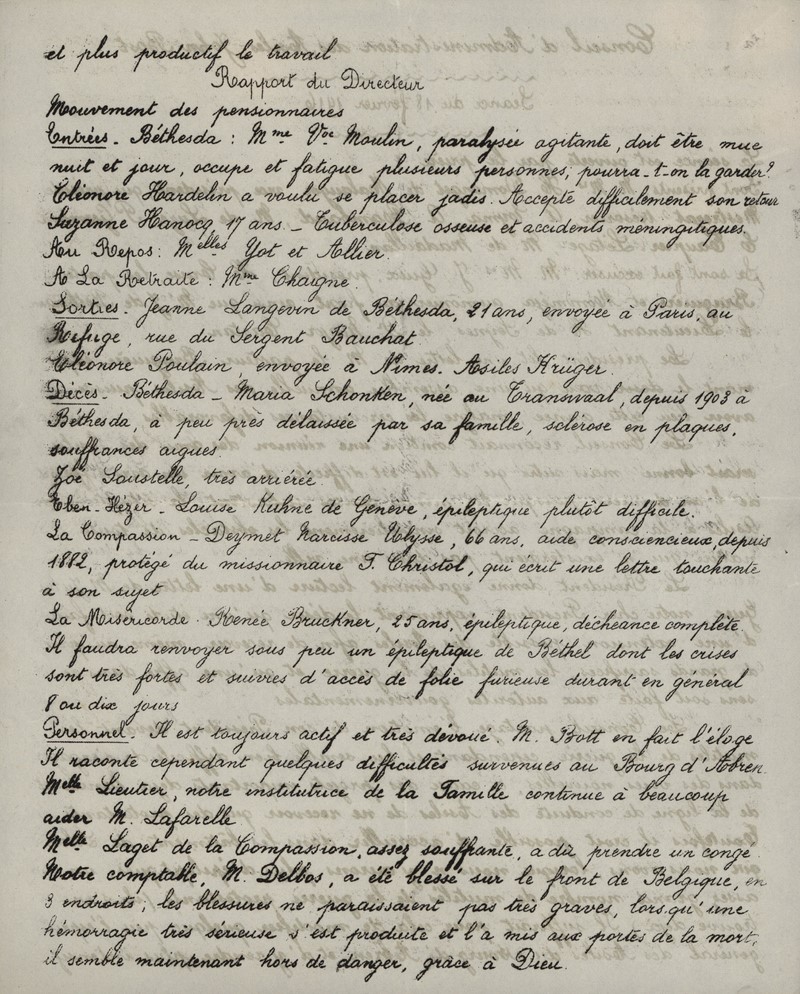 et plus productif le travail
Rapport du Directeur
Mouvement des pensionnaires
Entrées - Béthesda : Mme Vve Moulin, paralysée agitante, doit être mue
nuit et jour, occupe et fatigue plusieurs personnes, pourra-t-on la garder?
Eléonore Hardelin a voulu se placer jadis. Accepte difficilement son retour
Suzanne Hanocq, 17 ans - Tuberculose osseuse et accidents méningitiques.
Au Repos : Melles Yot et Allier.
A La Retraite : Mme Chaigne.
Sorties - Jeanne Langevin de Béthesda, 21 ans, envoyée à Paris, au
Refuge, rue du Sergent Bauchat
Eléonore Poulain, envoyée à Nîmes. Asiles Krüger.
Décès - Béthesda - Maria Schonken, née au Transvaal, depuis 1903 à
Béthesda, à peu près délaissée par sa famille, sclérose en plaques,
souffrances aigues
Zoé Soustelle, très arriérée
Eben-Hézer - Louise Kuhne de Genève, épileptique plutôt difficile.
La Compassion - Deymet Narcisse Ulysse, 66 ans, aide consciencieux, depuis
1882, protégé du missionnaire F. Christol, qui écrit une lettre touchante
à son sujet
La Miséricorde - Renée Bruckner, 25 ans, épileptique, déchéance complète.
Il faudra renvoyer sous peu un épileptique de Béthel dont les crises
sont très fortes et suivies d'accès de folie furieuse durant en général
8 ou dix jours
Personnel - Il est toujours actif et très dévoué. M. Bott en fait l'éloge
Il raconte cependant quelques difficultés survenues au Bourg d'Abren.
Melle Lieutier, notre institutrice de la Famille continue à beaucoup
aider M. Lafarelle
Melle Laget de la Compassion, assez souffrante, a dû prendre un congé.
Notre comptable, M. Delbos, a été blessé sur le front de Belgique, en
3 endroits ; les blessures ne paraissaient pas très graves, lorsqu'une
hémorragie très sérieuse s'est produite et l'a mis aux portes de la mort,
il semble maintenant hors de danger, grâce à Dieu.